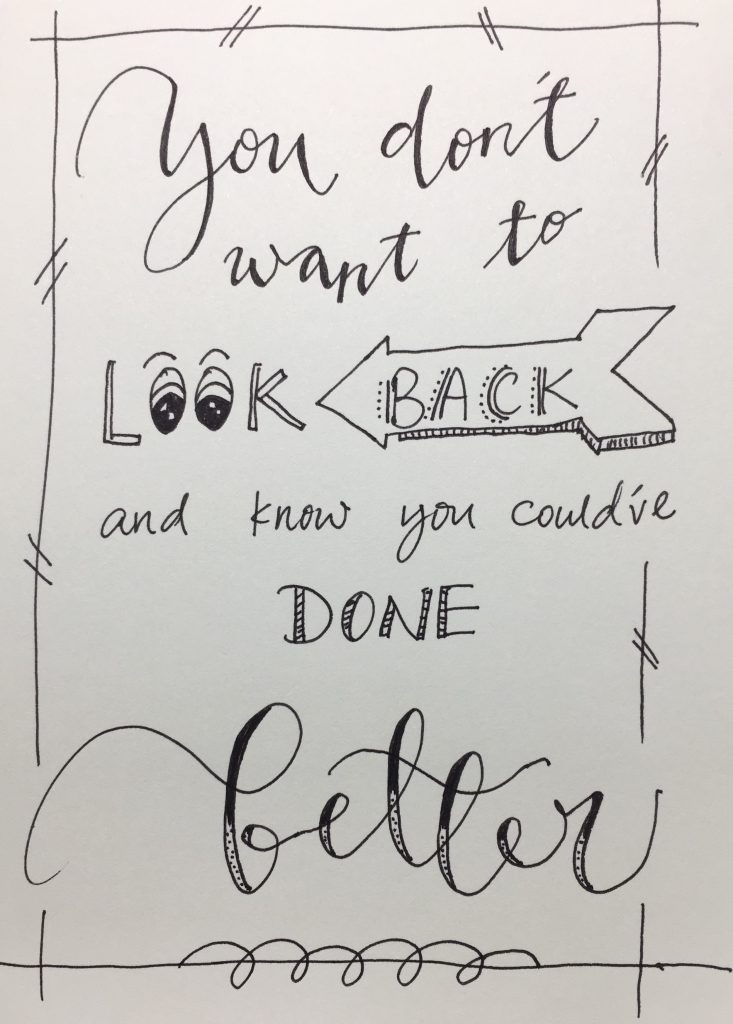 You don't
want to
LOOK BACK
and know you could've
DONE
better